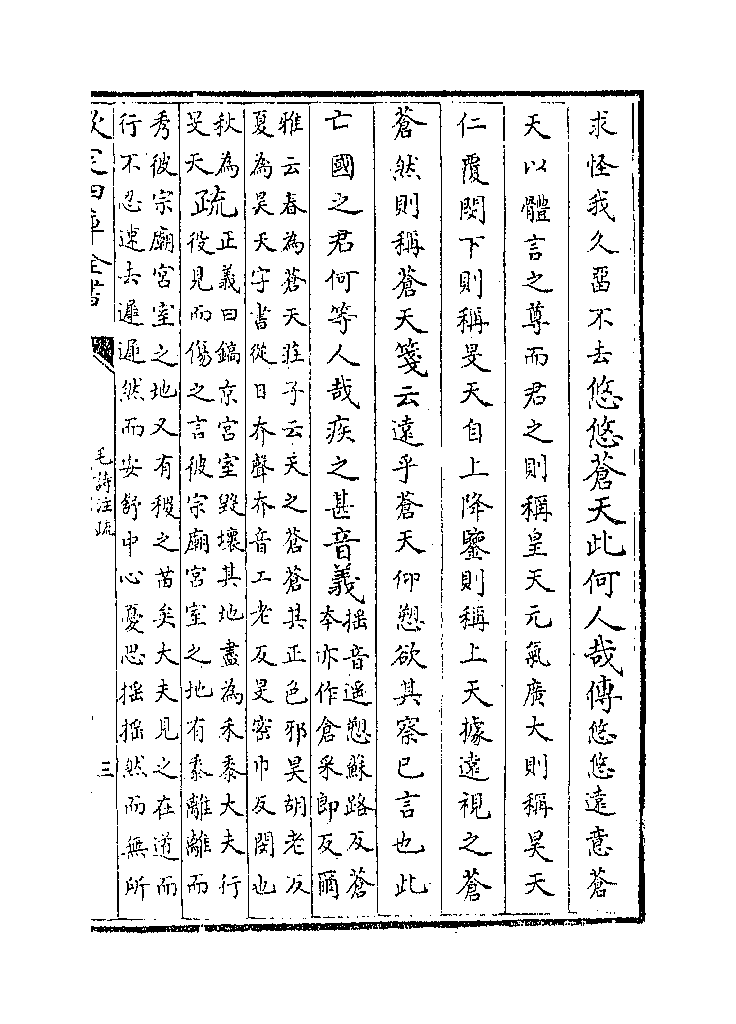 求怪我久留不去悠悠蒼天此何人哉傳悠悠遠意蒼
天以體言之尊而君之則稱皇天元氣廣大則稱昊天
仁覆閔下則稱旻天自上降鑒則稱上天據遠視之蒼
蒼然則稱蒼天箋云遠乎蒼天仰愬欲其察已言也此
亡國之君何等人哉疾之甚音義
揺音遥愬蘇路反蒼
本亦作倉采郎反爾
雅云春為蒼天莊子云天之蒼蒼其正色邪昊胡老反
夏為昊天字書從日夰聲夰音工老反旻密巾反閔也
秋為
旻天
疏
正義曰鎬京宮室毀壞其地盡為禾黍大夫行
役見而傷之言彼宗廟宮室之地有黍離離而
秀彼宗廟宮室之地又有稷之苗矣大夫見之在道而
行不忍速去遲遲然而安舒中心憂思揺揺然而無所
欽定四庫全書
毛詩注疏
三